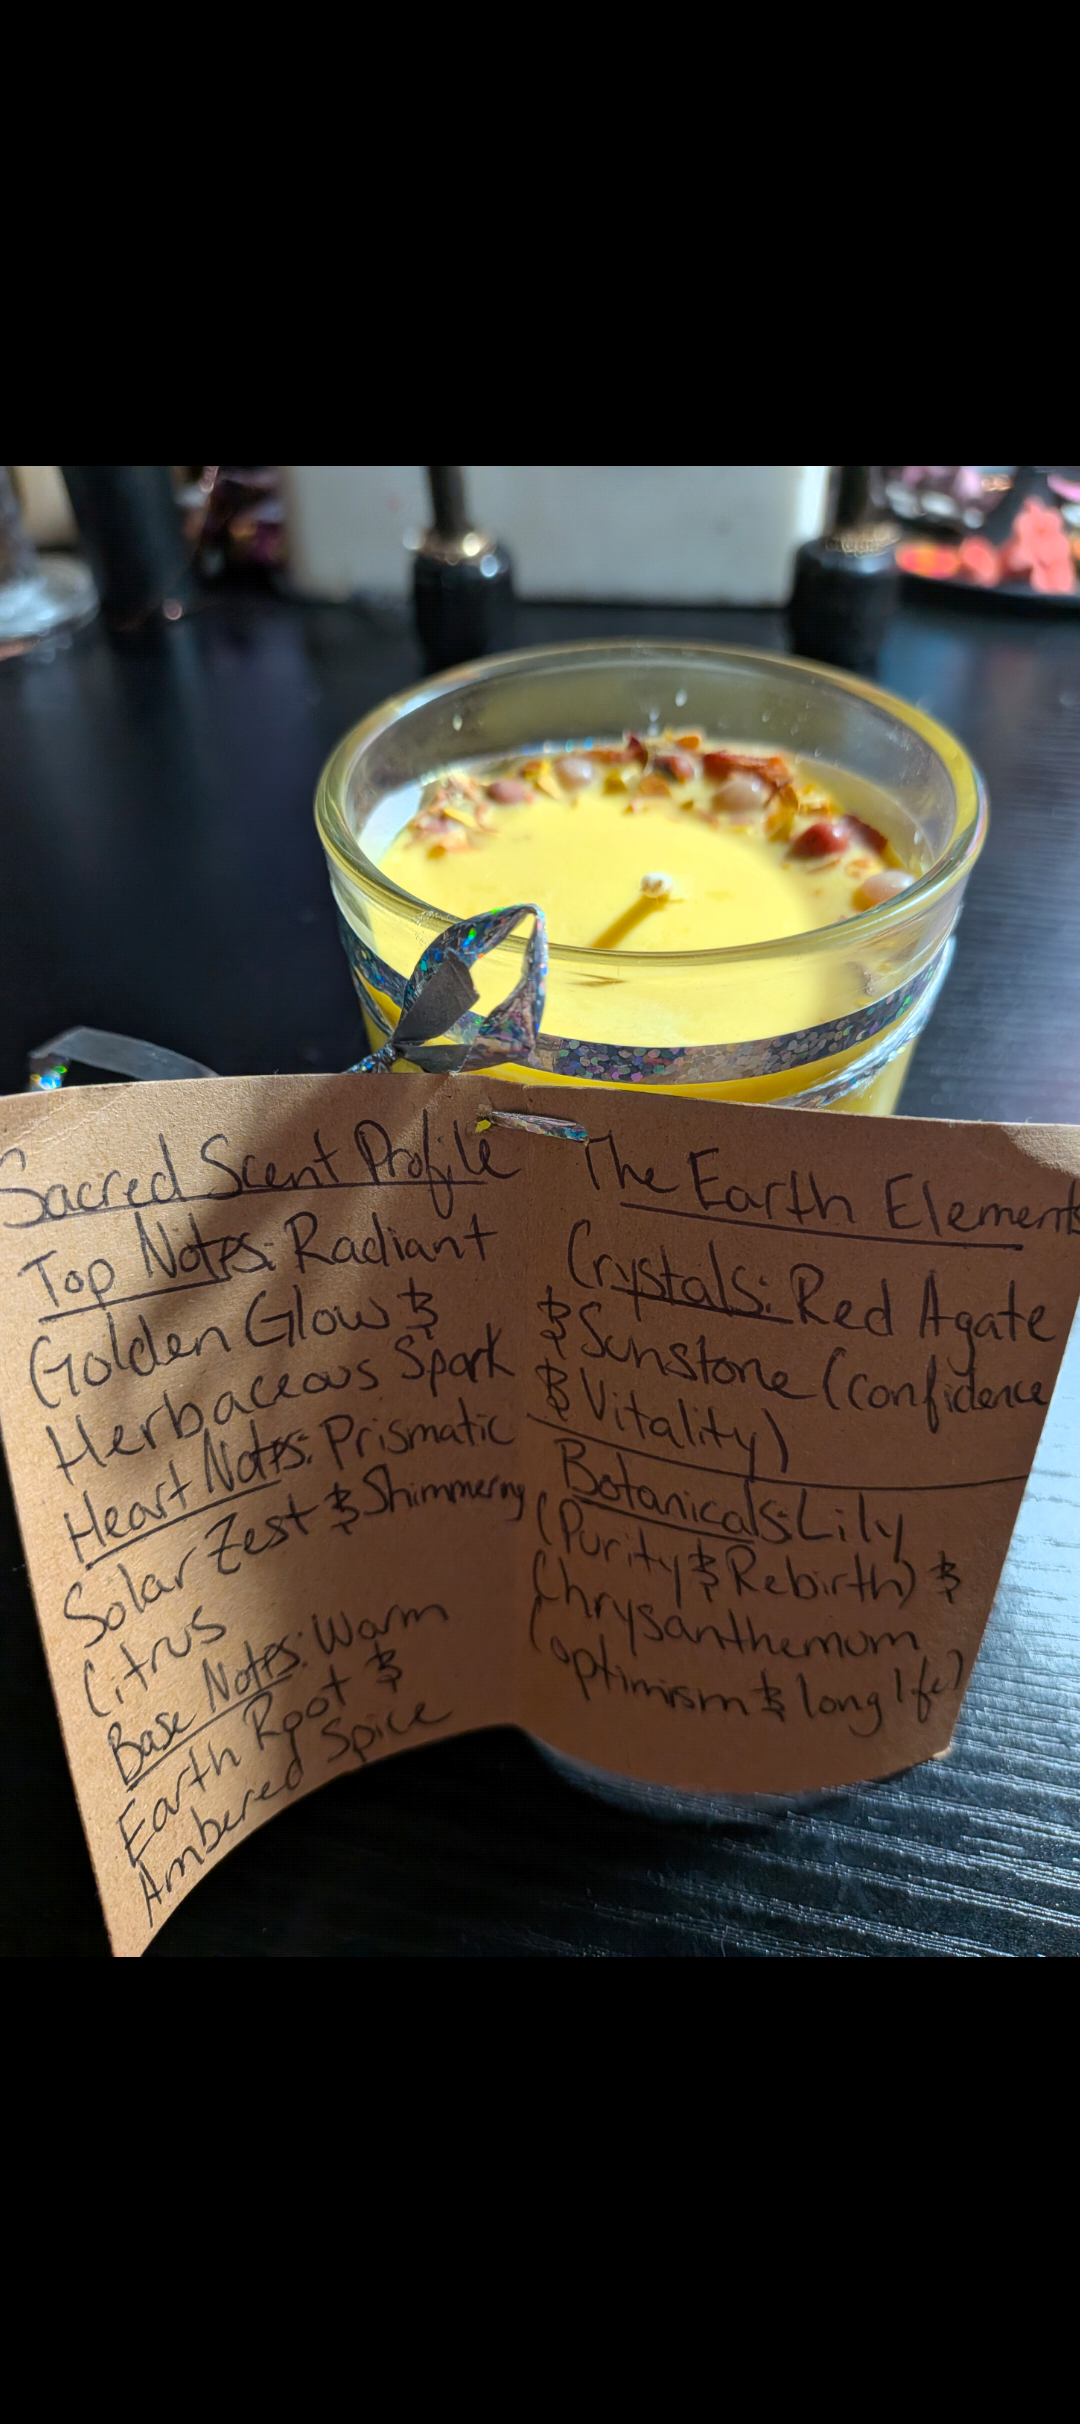 Sacred Scent Profile
Top Notes: Radiant
Golden Glow &
Herbaceous Spark
Heart Notes: Prismatic
Solar Zest & Shimmering
Citrus
Base Notes: Warm
Earth Root &
Ambered Spice
The Earth Elements
Crystals: Red Agate
& Sunstone (confidence
& Vitality)
Botanicals: Lily
(Purity & Rebirth) &
Chrysanthemum
(optimism & long life)